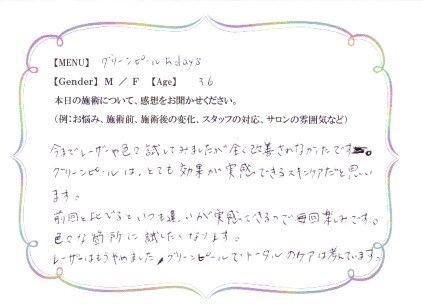 【MENU】 グリーンピール 5days
【Gender】 M / F 【Age】 36
本日の施術について、感想をお聞かせください。
(例:お悩み、施術前、施術後の変化、スタッフの対応、サロンの雰囲気など)
今までレーザーや色々試してみましたが全く改善されなかったです。
グリーンピールは、とても効果が実感できるスキンケアだと思い
ます。
前回と比べるといつも違いが実感できるので毎回楽しみです。
色々な箇所に試したくなります。
レーザーはもうやめました、グリーンピールでトータルのケアは考えています。